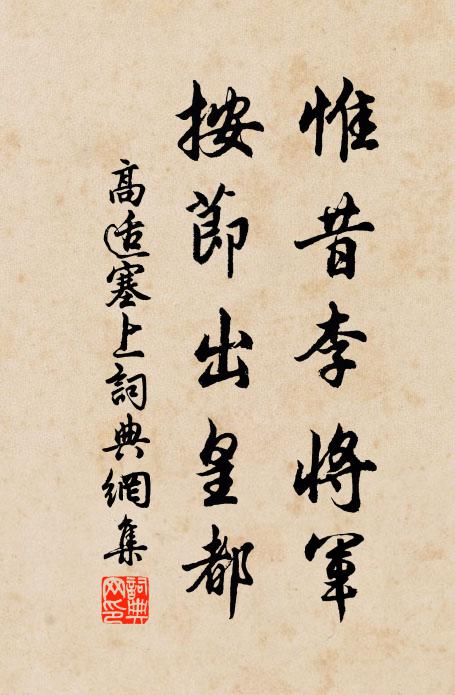 惟昔李將軍
按節出皇都
高适塞上詞典網集
詞典
网印